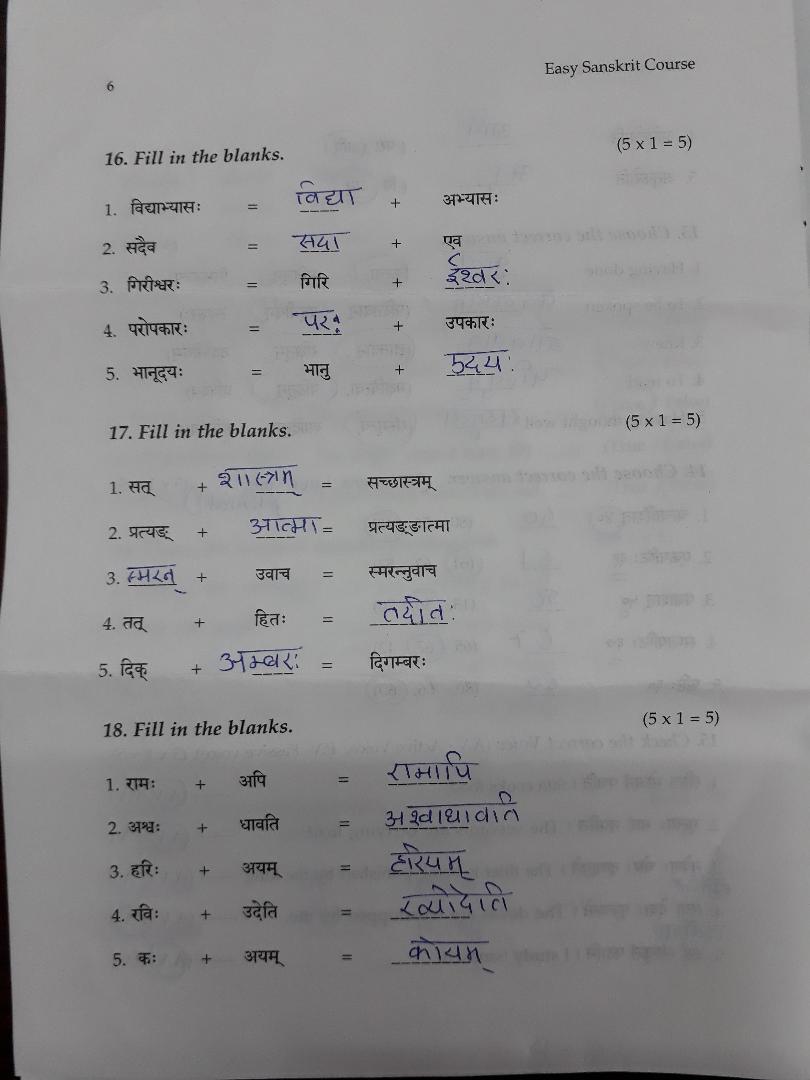 6
Easy Sanskrit Course
16. Fill in the blanks. (5 x 1 = 5)
1. विद्याभ्यासः = विद्या + अभ्यासः
2. सदैव = सदा + एव
3. गिरीश्वरः = गिरि + ईश्वरः
4. परोपकारः = पर + उपकारः
5. भानूदयः = भानु + उदयः
17. Fill in the blanks. (5 x 1 = 5)
1. सत् + शास्त्रम् = सच्छास्त्रम्
2. प्रत्यङ् + आत्मा = प्रत्यङ्ङात्मा
3. स्मरन् + उवाच = स्मरन्नुवाच
4. तत् + हितः = तदीतः
5. दिक् + अम्बरः = दिगम्बरः
18. Fill in the blanks. (5 x 1 = 5)
1. रामः + अपि = रामापि
2. अश्वः + धावति = अश्वाधावति
3. हरिः + अयम् = हरियम्
4. रविः + उदेति = रव्योदेति
5. कः + अयम् = कोयम्